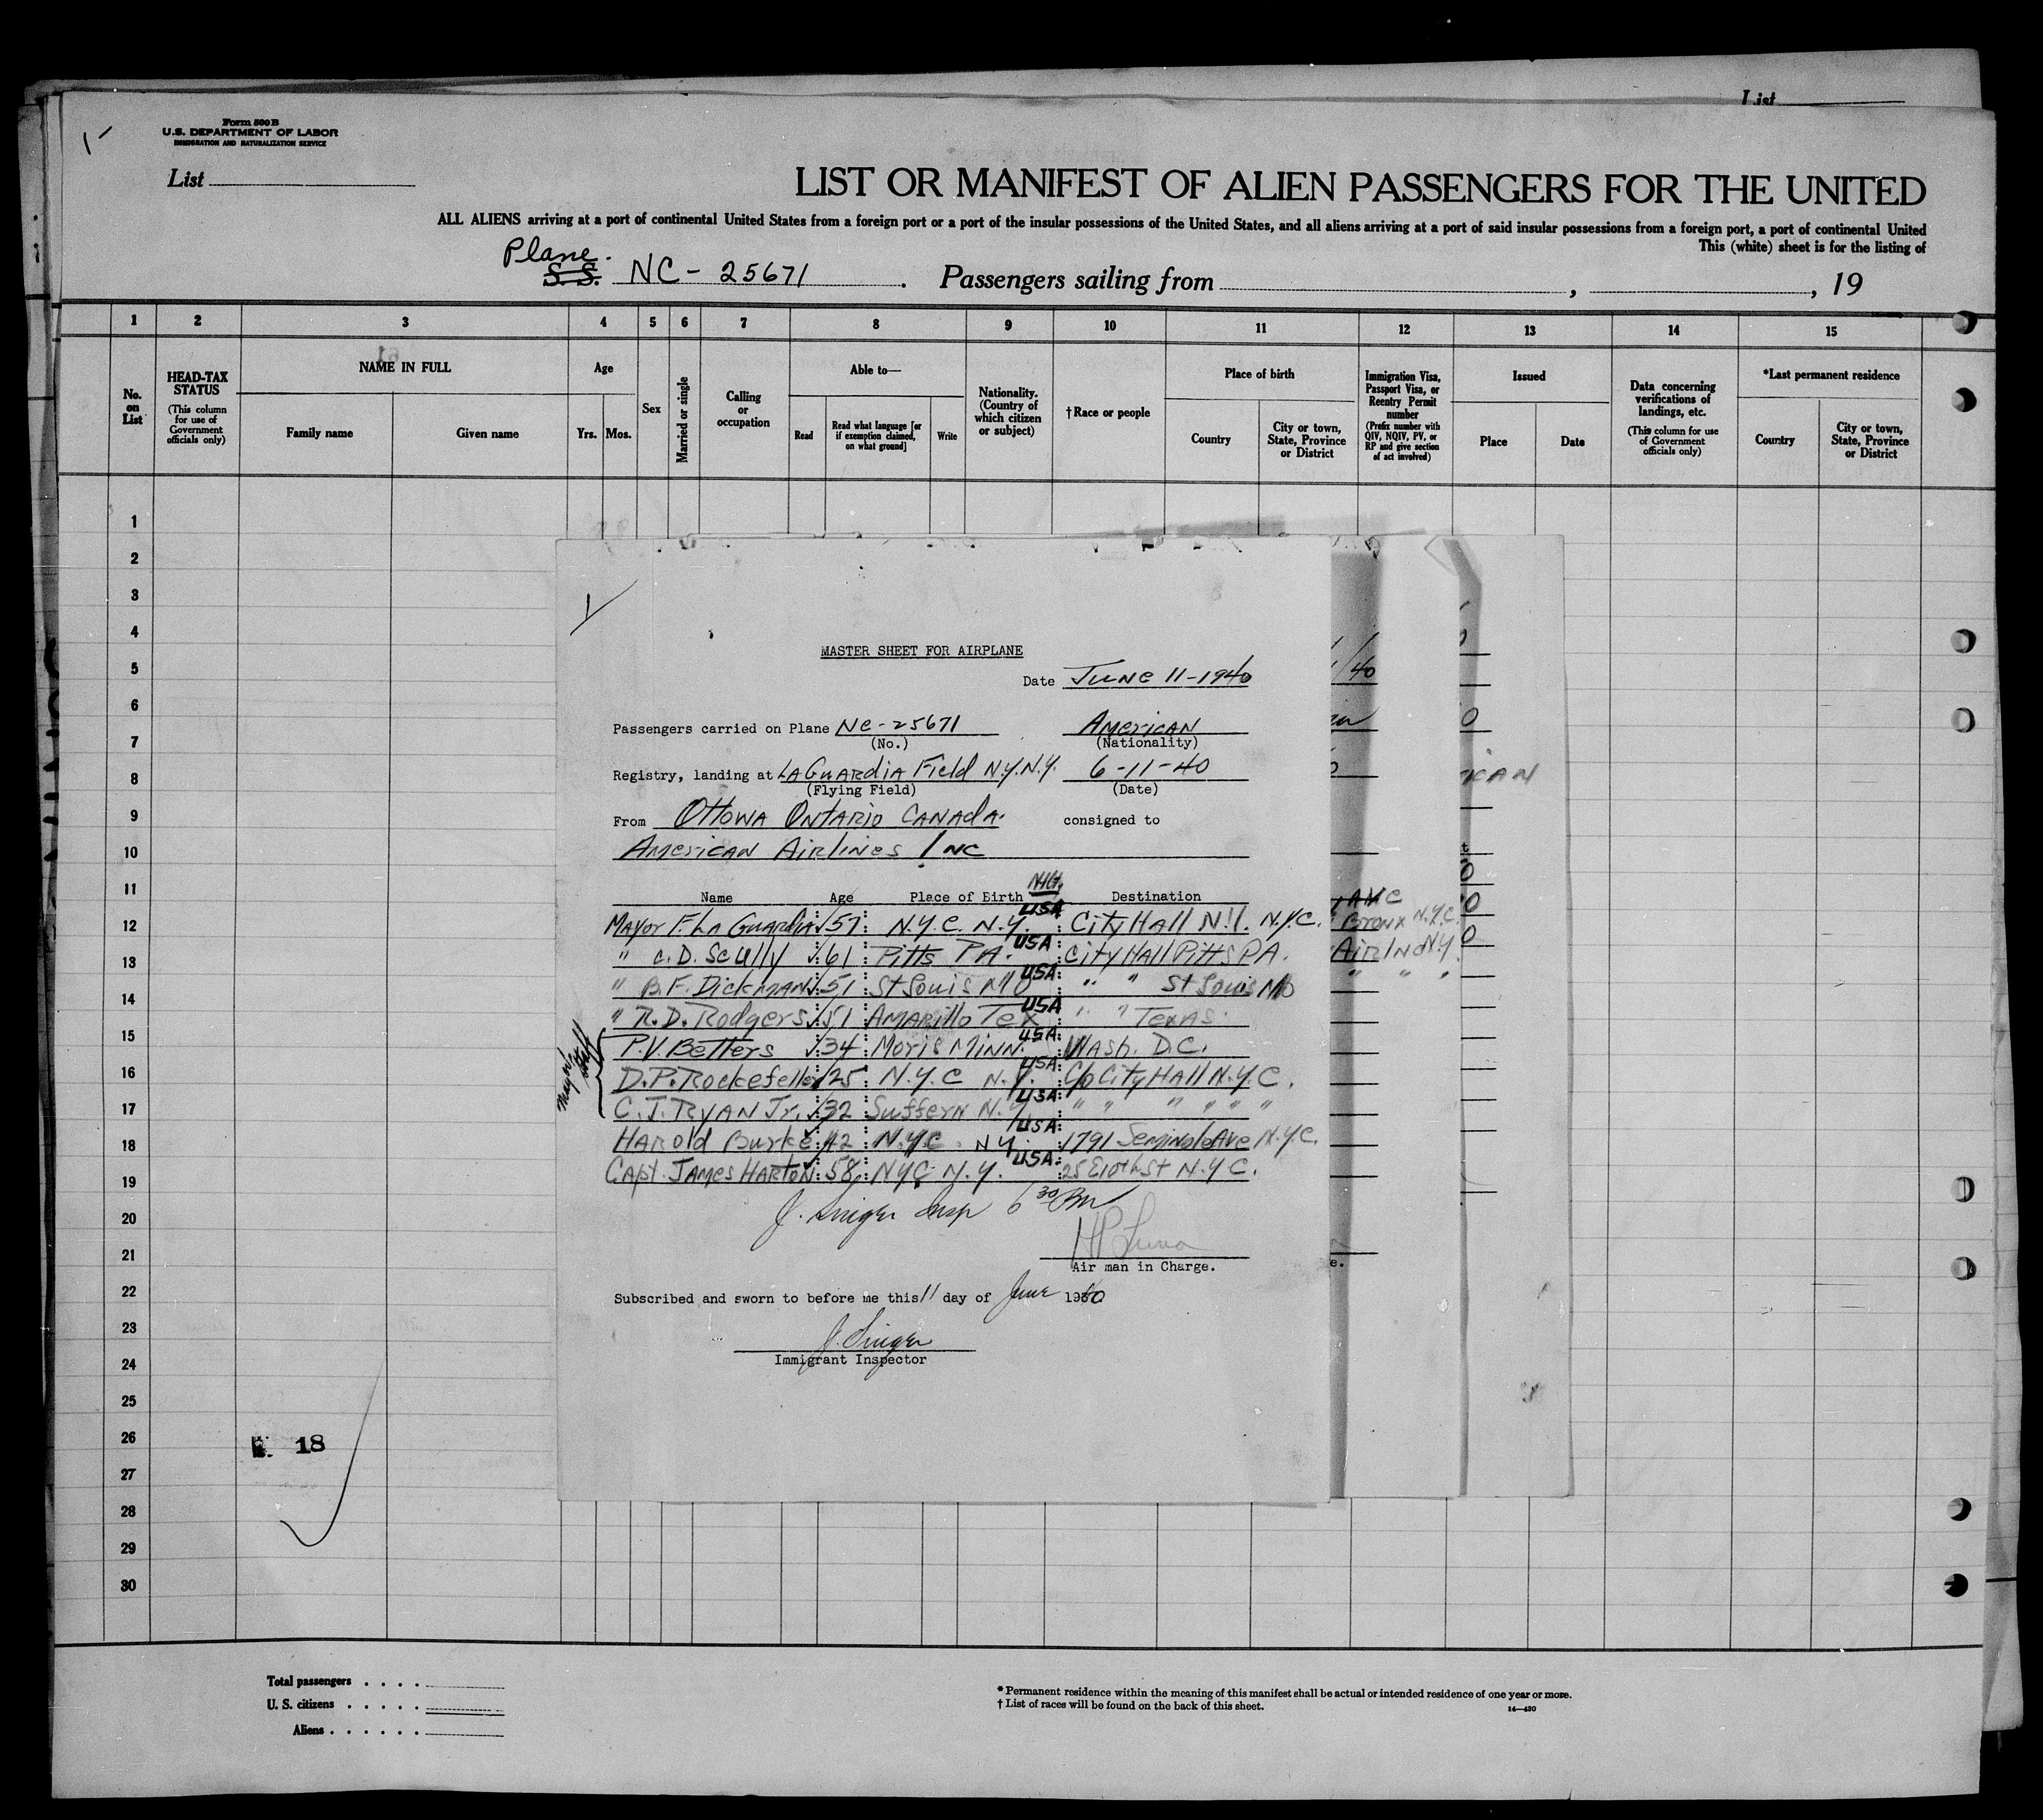 List
Form 500 B
U.S. DEPARTMENT OF LABOR
IMMIGRATION AND NATURALIZATION SERVICE
List
LIST OR MANIFEST OF ALIEN PASSENGERS FOR THE UNITED
ALL ALIENS arriving at a port of continental United States from a foreign port or a port of the insular possessions of the United States, and all aliens arriving at a port of said insular possessions from a foreign port, a port of continental United
This (white) sheet is for the listing of
Plane.
S. S. NC-25671. Passengers sailing from , , 19
1 2 3 4 5 6 7 8 9 10 11 12 13 14 15
No. on List
HEAD-TAX STATUS
(This column for use of Government officials only)
NAME IN FULL
Family name
Given name
Age
Yrs. Mos.
Sex
Married or single
Calling or occupation
Able to—
Read
Read what language [or if exemption claimed, on what ground]
Write
Nationality. (Country of which citizen or subject)
†Race or people
Place of birth
Country
City or town, State, Province or District
Immigration Visa, Passport Visa, or Reentry Permit number
(Prefix number with QIV, NQIV, PV, or RP and give section of act involved)
Issued
Place
Date
Data concerning verifications of landings, etc.
(This column for use of Government officials only)
*Last permanent residence
Country
City or town, State, Province or District
1
2
3
4
5
6
7
8
9
10
11
12
13
14
15
16
17
18
19
20
21
22
23
24
25
26
27
28
29
30
18
MASTER SHEET FOR AIRPLANE
Date June 11-1940
Passengers carried on Plane NC-25671 American
(No.) (Nationality)
Registry, landing at LaGuardia Field N.Y.N.Y. 6-11-40
(Flying Field) (Date)
From Ottowa Ontario Canada. consigned to
American Airlines Inc
Name Age Place of Birth Destination
Mayor F. La Guardia 57 N.Y.C. N.Y. USA City Hall N.Y. N.Y.C.
" C.D. Scully 61 Pitts PA. USA City Hall Pitts PA.
" B.F. Dickman 51 St Louis MO USA " " St Louis Mo
" R.D. Rodgers 51 Amarillo Tex USA " " Texas.
Mayor's Staff
P.V. Betters 34 Moris Minn. USA Wash. D.C.
D.P. Rockefeller 25 N.Y.C N.Y. USA C/o City Hall N.Y.C.
C.J. Ryan Jr. 32 Suffern N.Y. USA " " " " " "
Harold Burke 42 N.Y.C. N.Y. USA 1791 Seminole Ave N.Y.C.
Capt. James Harton 58 NYC N.Y. USA 25 E 10th St N.Y.C.
J. Singer Insp 6 30 PM
Air man in Charge.
Subscribed and sworn to before me this 11 day of June 1940
J. Singer
Immigrant Inspector
40
Bronx N.Y.C.
Total passengers
U. S. citizens
Aliens
* Permanent residence within the meaning of this manifest shall be actual or intended residence of one year or more.
† List of races will be found on the back of this sheet.
14—430